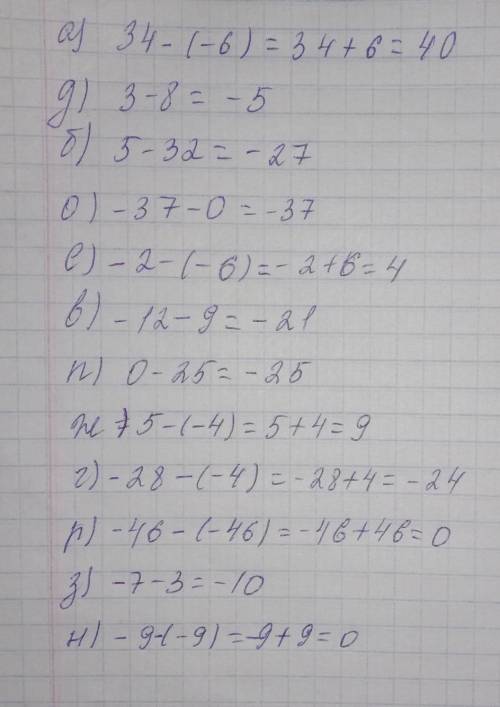 а) 34 - (-6) = 34 + 6 = 40
д) 3 - 8 = -5
б) 5 - 32 = -27
о) -37 - 0 = -37
е) -2 - (-6) = -2 + 6 = 4
в) -12 - 9 = -21
п) 0 - 25 = -25
ж) 5 - (-4) = 5 + 4 = 9
г) -28 - (-4) = -28 + 4 = -24
р) -46 - (-46) = -46 + 46 = 0
з) -7 - 3 = -10
н) -9 - (-9) = -9 + 9 = 0